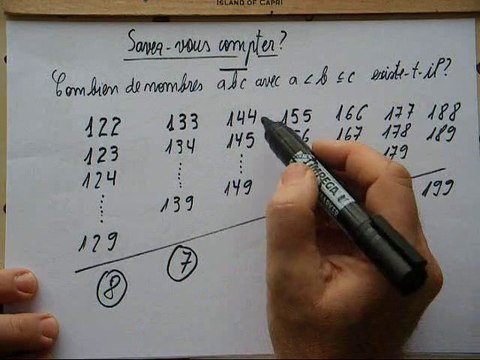 ISLAND OF CAPRI
Savez-vous compter?
Combien de nombres abc avec a < b ≤ c existe-t-il?
122 133 144 155 166 177 188
123 134 145 167 178 189
124 179
129 139 149 199
8 7